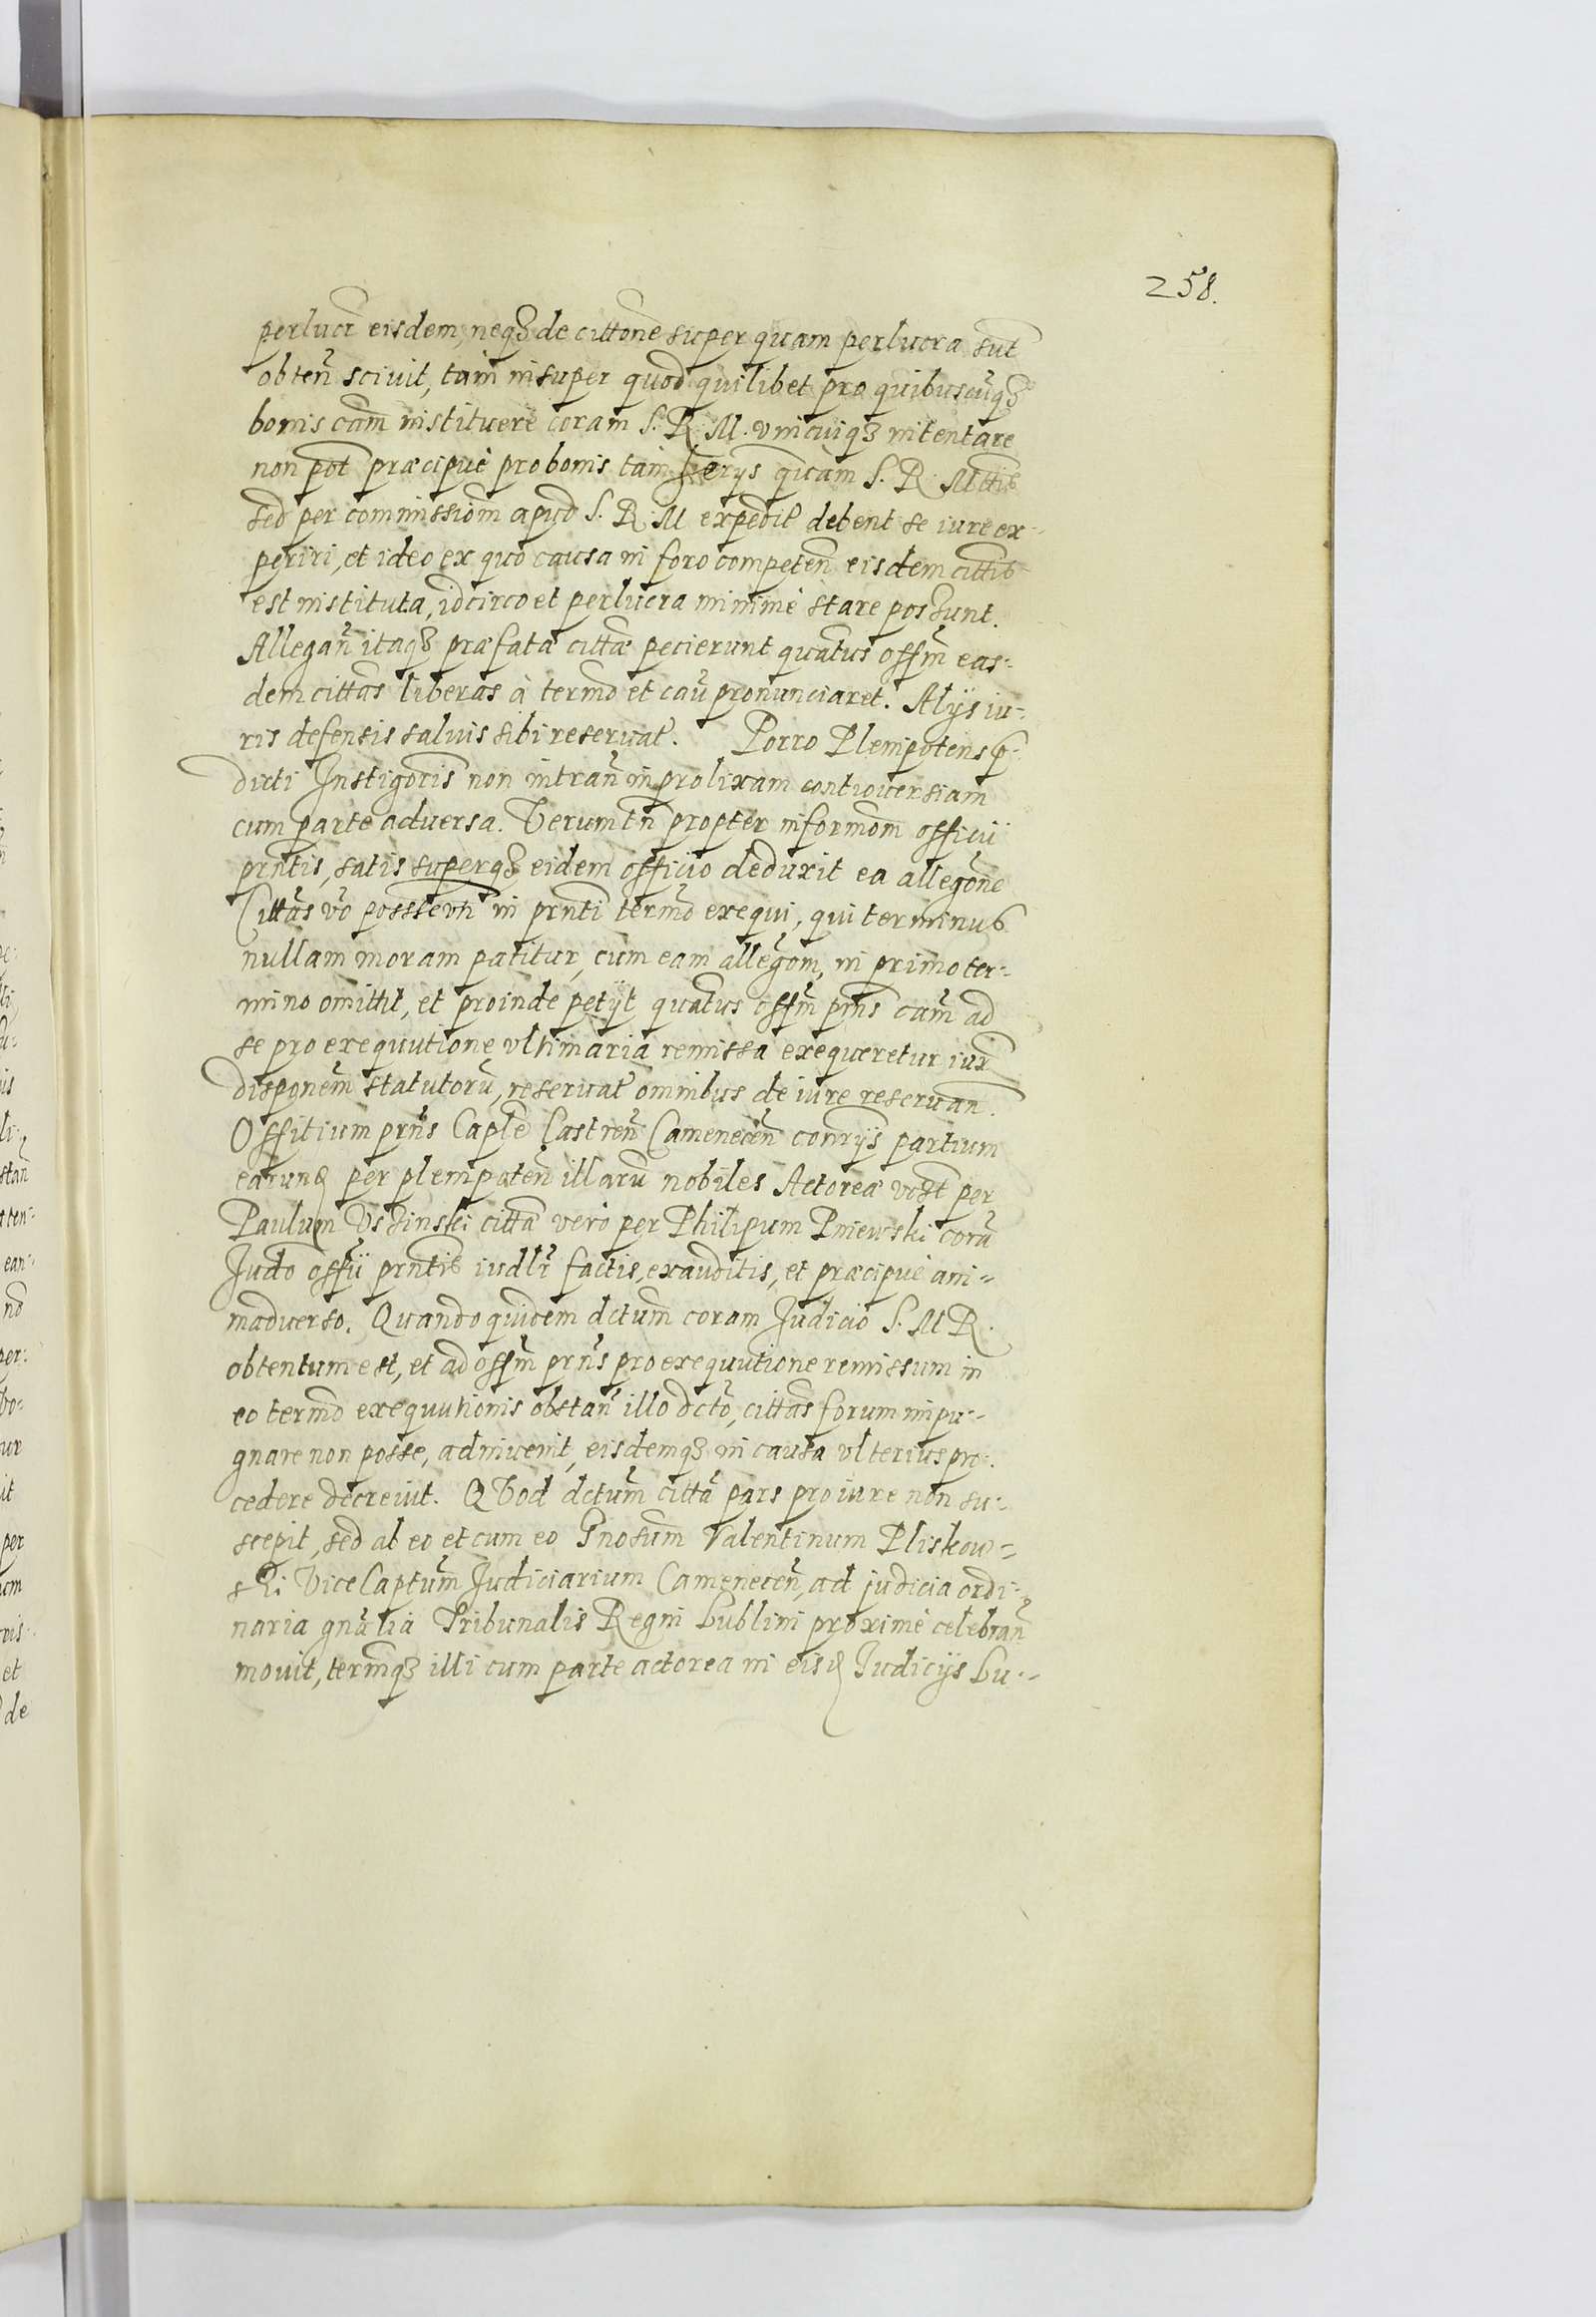 258.
perlucr eisdem, neqȝ de cittone super quam perlucra sut
obten̄ sciuit, tam insuper quod quilibet pro quibuscūqȝ
bonis cam instituere coram S. R. M. vnicuiqȝ intentare
non pot præcipuè pro bonis tam quam S. R. Mttis
sed per commissiom apud S. R. M expedil debent se iure ex-
periri, et ideo ex quo causa in foro competen̄ eisdem cittis
est instituta, idcirco et perlucra minimè stare possunt.
Allegan̄ itaqȝ præfatæ cittæ pecierunt quatus offm eas:
dem cittas liberas à termo et cau pronunciaret. Alijs iu:
ris defensis saluis sibi reseruat. Porro Plenipotens p:
dicti Instigoris non intran̄ in prolixam controuersiam
cum parte aduersa. Verumtn propter informom officij
prntis, satis superqȝ eidem officio deduxit ea allegone
Cittas vo in prnti termo exequi, qui terminus
nullam moram patitur, cum eam allegom, in primo ter:-
mino omittit, et proinde petijt quatus offm prns cam ad
se pro exequutione vltimaria remissa exequeretur iux
disponem statutoru, reseruat omnibus de iure reseruan.
Offitium prns Caple Castren̄ Camenecen̄ conrijs partium
earund per plenipoten̄ illaru nobiles Actoreæ vidt per
Paulum Vssinski citta verò per Philipum Pniewski coru
Judo offij prntis iudlr factis, exauditis, et præcipuè ani=
maduerso. Quandoquidem dctum coram Judicio S. M R.
obtentum est, et ad offm prns pro exequutione remissum in
eo termo exequutionis obstan̄ illo dcto, cittas forum impu:-
gnare non posse, adinuenit, eisdemqȝ in causa vlterius pro:.
cedere decreuit. QVod dctum citta pars pro iure non su:-
scepit, sed ab eo et cum eo Gnosum Valentinum Pliskow=
ski Vice Captum Judiciarium Camenecen̄, ad judicia ordi:-
naria gnalia Tribunalis Regni Lublini proximè celebran̄
mouit, termqȝ illi cum parte actorea in eisd Judicijs Lu:-